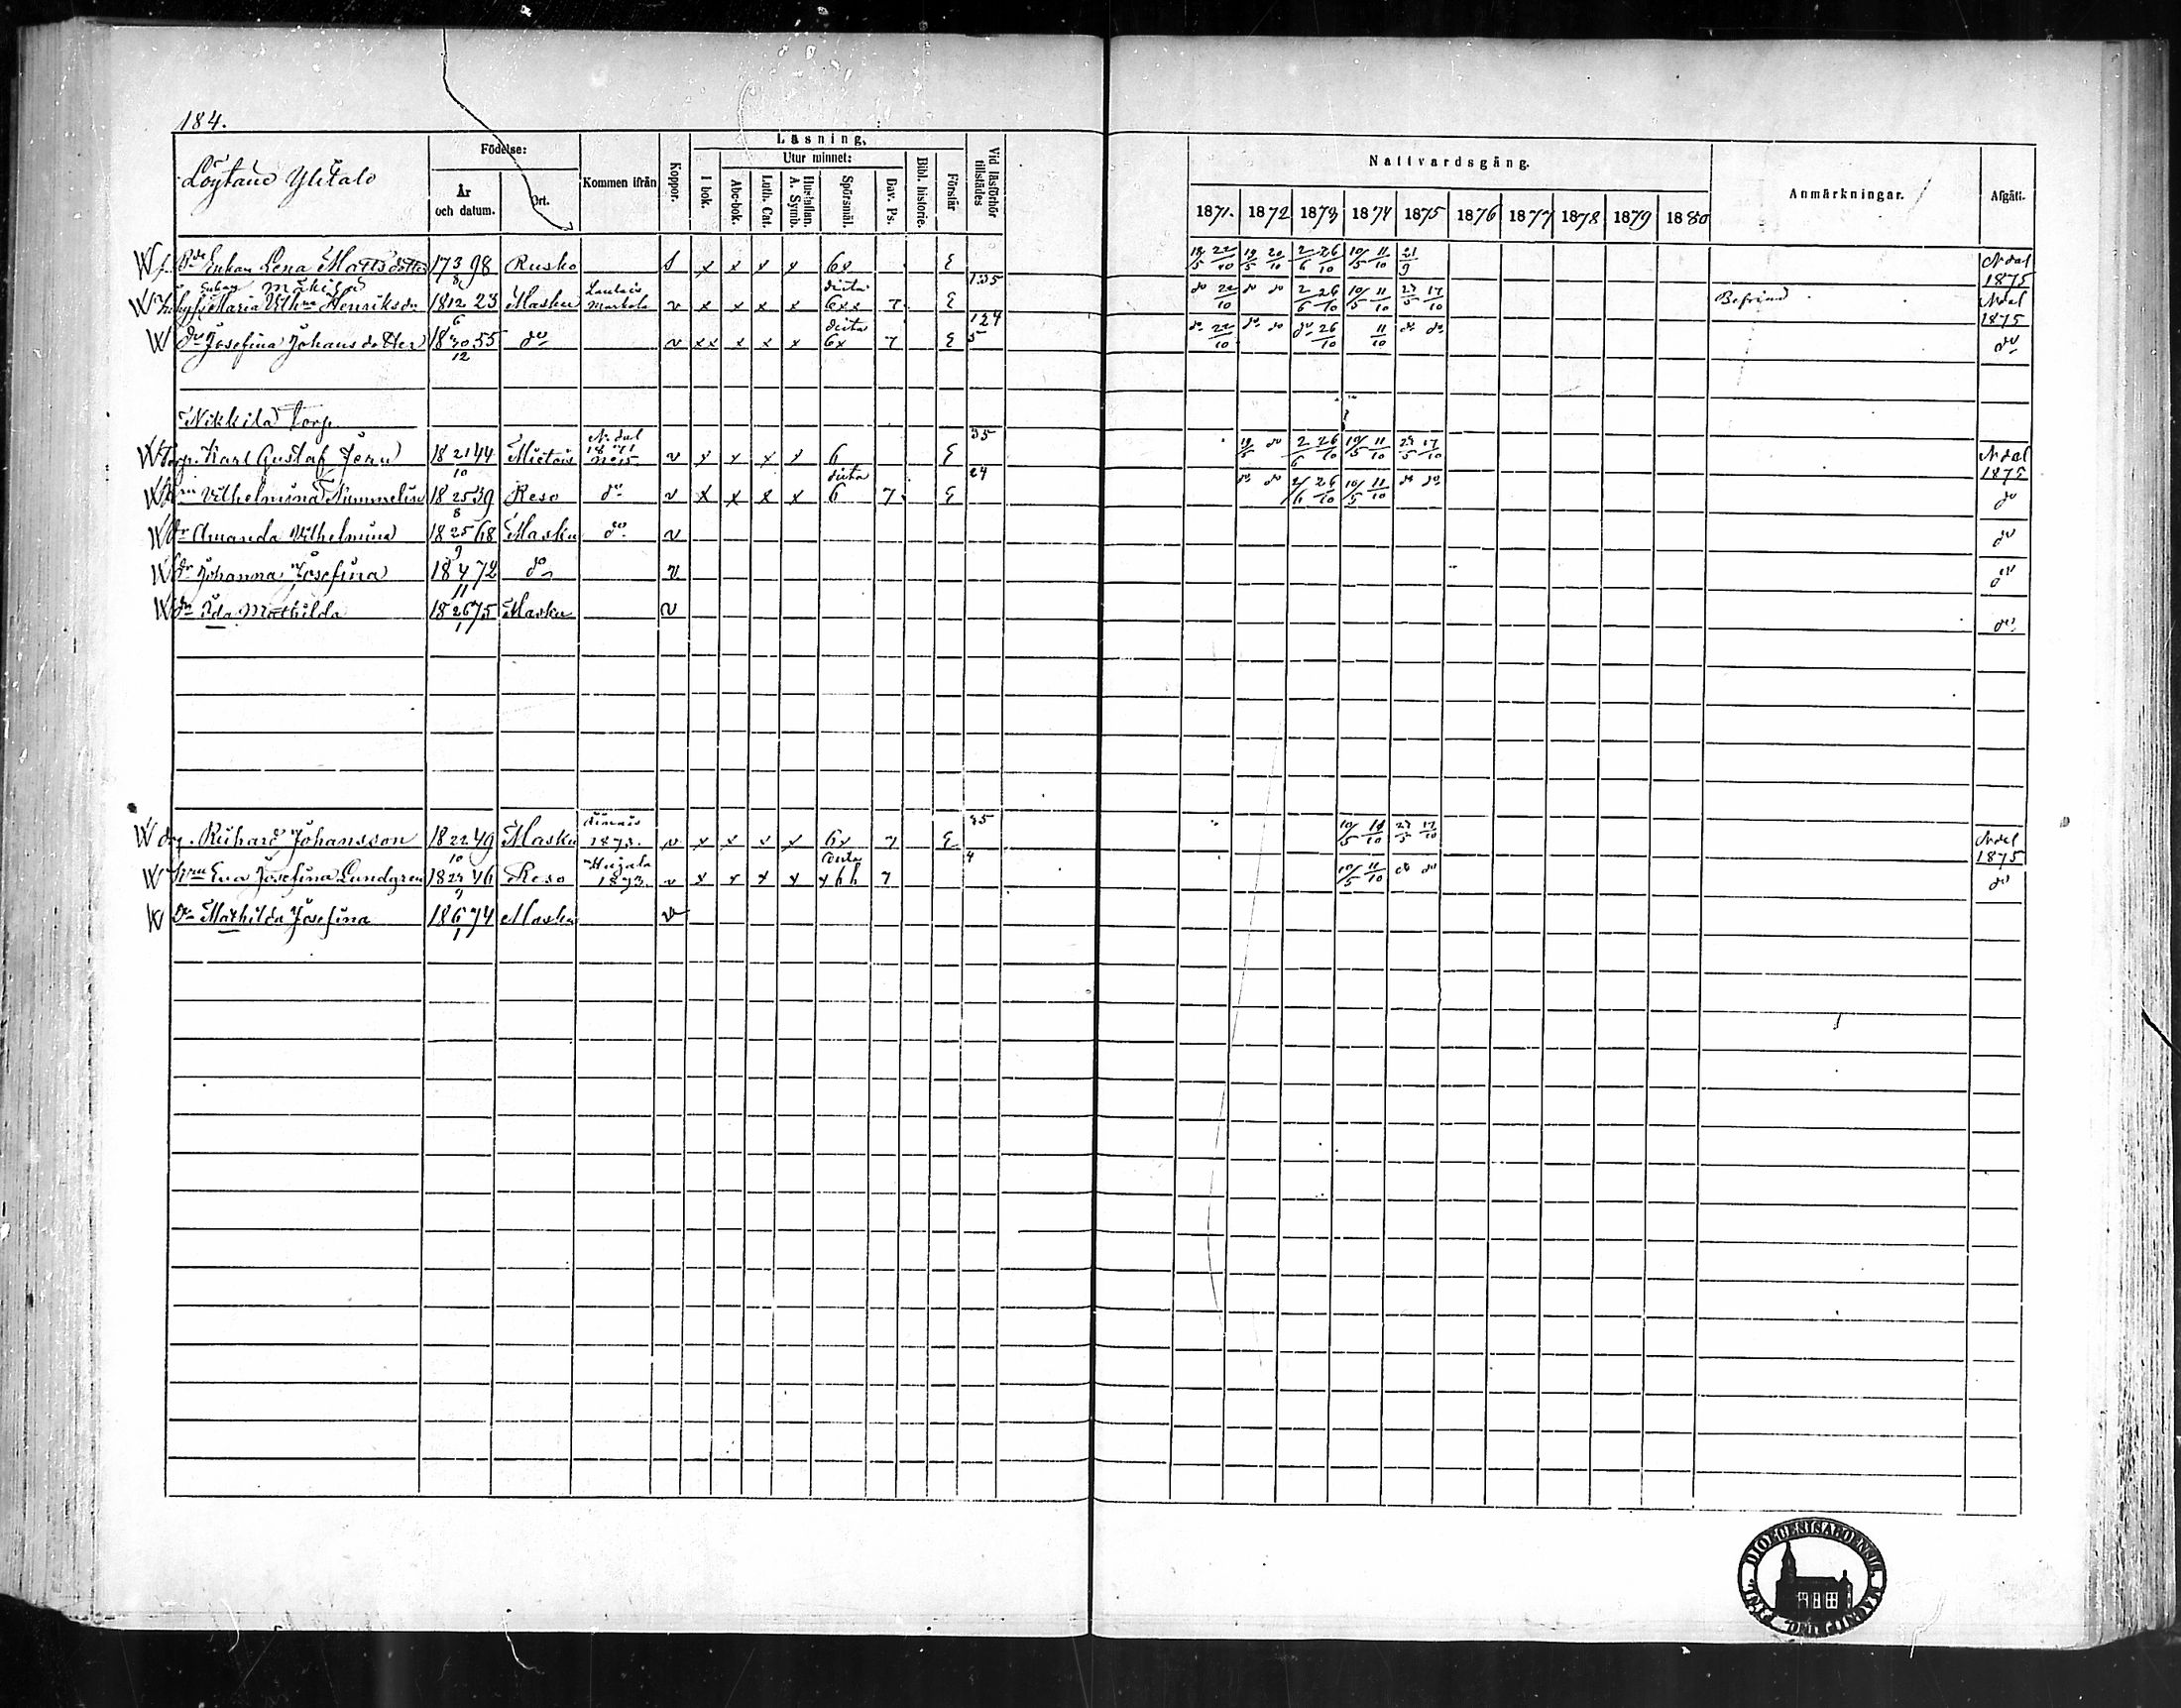 184.
Löytane Ylitalo
Födelse:
År och datum.
Ort.
Kommen ifrån
Koppor.
Läsning,
I bok.
Utur minnet:
Abc-bok.
Luth. Cat.
Hustaflan. A. Symb.
Spörsmål.
Dav. Ps.
Bibl. historie.
Förstår
Vid läsförhör tillstädes
Nattvardsgång.
1871. 1872 1873 1874 1875 1876 1877 1878 1879 1880
Anmärkningar.
Afgått.
Enkan Lena Mattsdotter 17 3/8 98 Rusko x x x x 6x E 18/5 22/10 19/5 20/10 2/6 26/10 10/5 11/10 21/9 Ndal 1875
Enkan Mäkilä
Maria Vilh:na Henriksdr 18 12/6 23 Masku v x x x x 6xx 7 E do 22/10 do do 2/6 26/10 10/5 11/10 23/5 17/10 Befriad Ndal 1875
dr Josefina Johansdotter 18 30/12 55 do v xx x x x 6x 7 E do 22/10 do do do 26/10 11/10 do do do
Nikkilä Torp.
Torp. Karl Gustaf Jern 18 21/10 44 Mietois Ndal 1871 No 15 v x x x x 6 E 35 19/5 do 2/6 26/10 10/5 11/10 23/5 17/10 Ndal 1875
Vilhelmina Nummelin 18 25/8 39 Reso do v x x x x 6 7 E 24 do do 2/6 26/10 10/5 11/10 do do do
dr Amanda Vilhelmina 18 25/9 68 Masku do v do
dr Johanna Josefina 18 4/11 72 do v do
dr Ida Mathilda 18 26/1 75 Masku v do
Richard Johansson 18 22/10 49 Masku 1873. v x x x x 6x 7 E 35 10/5 11/10 23/5 17/10 Ndal 1875
Eva Josefina Lundgren 18 29/9 46 Reso 1873. v x x x x 7 4 10/5 11/10 do do do
Dr Mathilda Josefina 18 6/1 74 Masku v